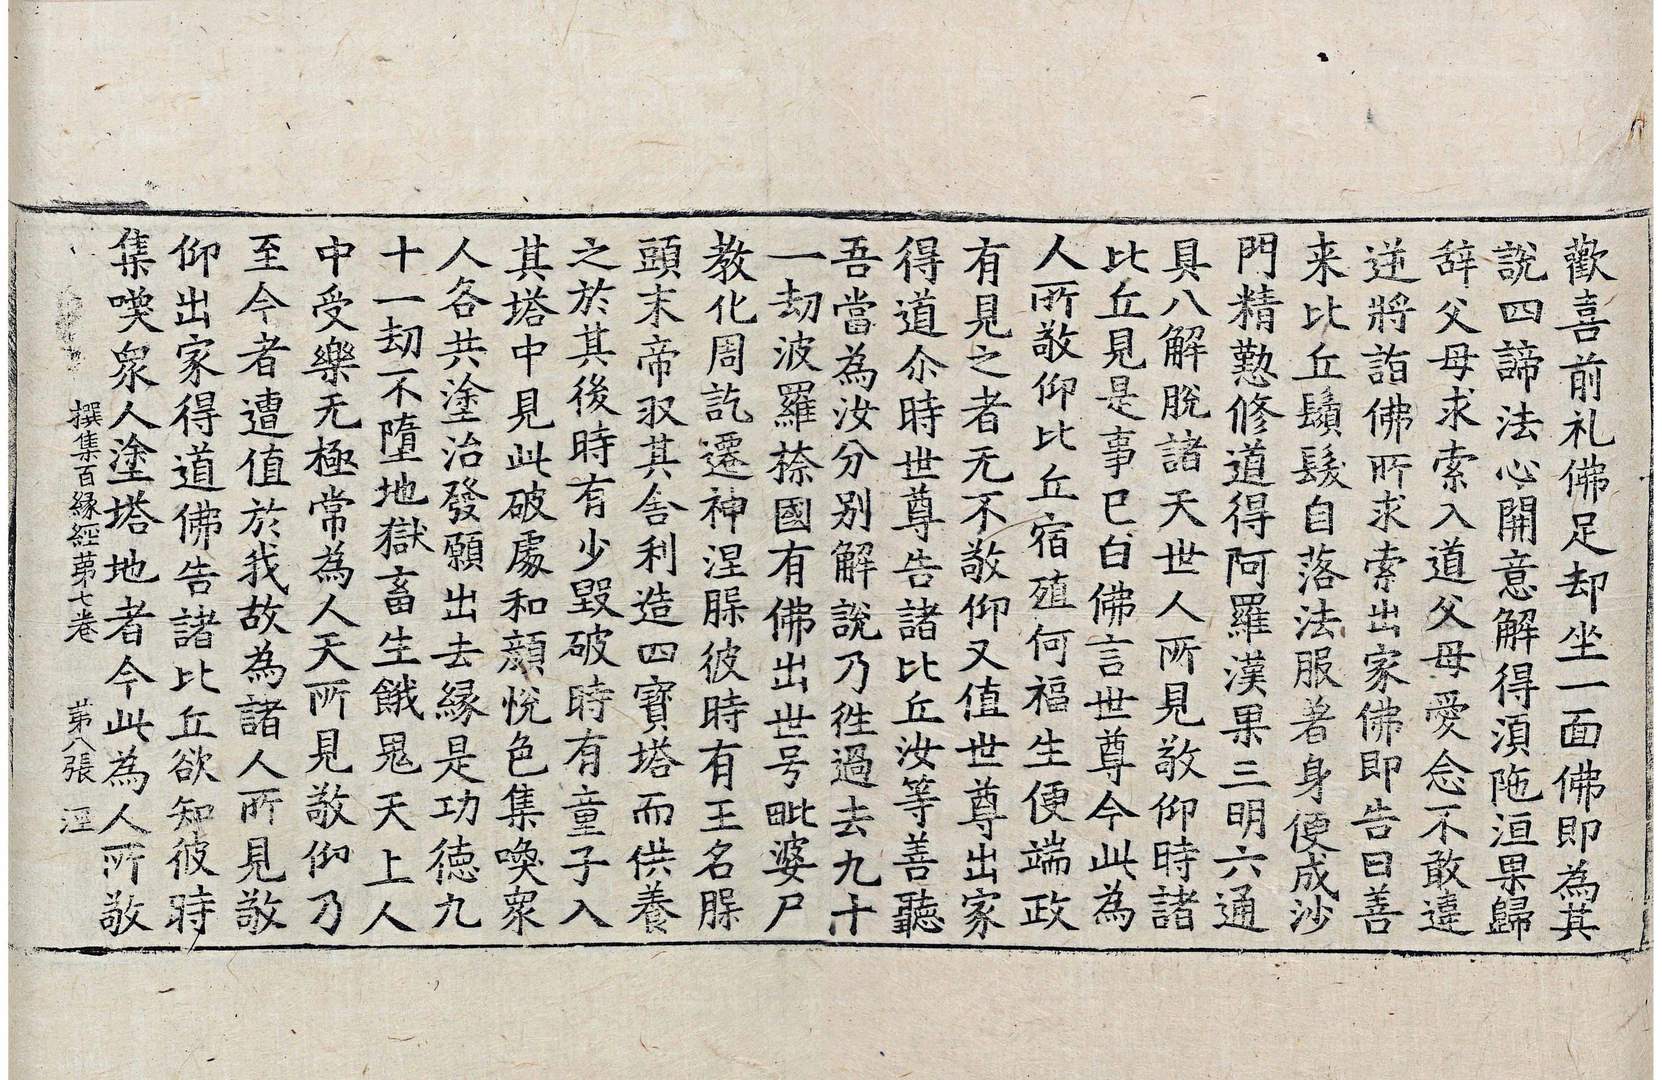 歡喜前礼佛足却坐一面佛即為其
說四諦法心開意解得湏陁洹果歸
辞父母求索入道父母愛念不敢違
逆將詣佛所求索出家佛即告曰善
来比丘鬚髮自落法服著身便成沙
門精懃修道得阿羅漢果三明六通
具八解脫諸天世人所見敬仰時諸
比丘見是事已白佛言世尊今此為
人所敬仰比丘宿殖何福生便端政
有見之者无不敬仰又值世尊出家
得道尒時世尊告諸比丘汝等善聽
吾當為汝分別解說乃徃過去九十
一劫波羅㮈國有佛出世号毗婆尸
教化周訖遷神涅槃彼時有王名槃
頭末帝収其舍利造四寶塔而供養
之於其後時有少毀破時有童子入
其塔中見此破處和顔悅色集喚衆
人各共塗治發願出去縁是功徳九
十一劫不墮地獄畜生餓鬼天上人
中受樂无極常為人天所見敬仰乃
至今者遭值於我故為諸人所見敬
仰出家得道佛告諸比丘欲知彼時
集喚衆人塗塔地者今此為人所敬
撰集百縁經苐七卷 苐八張 湮